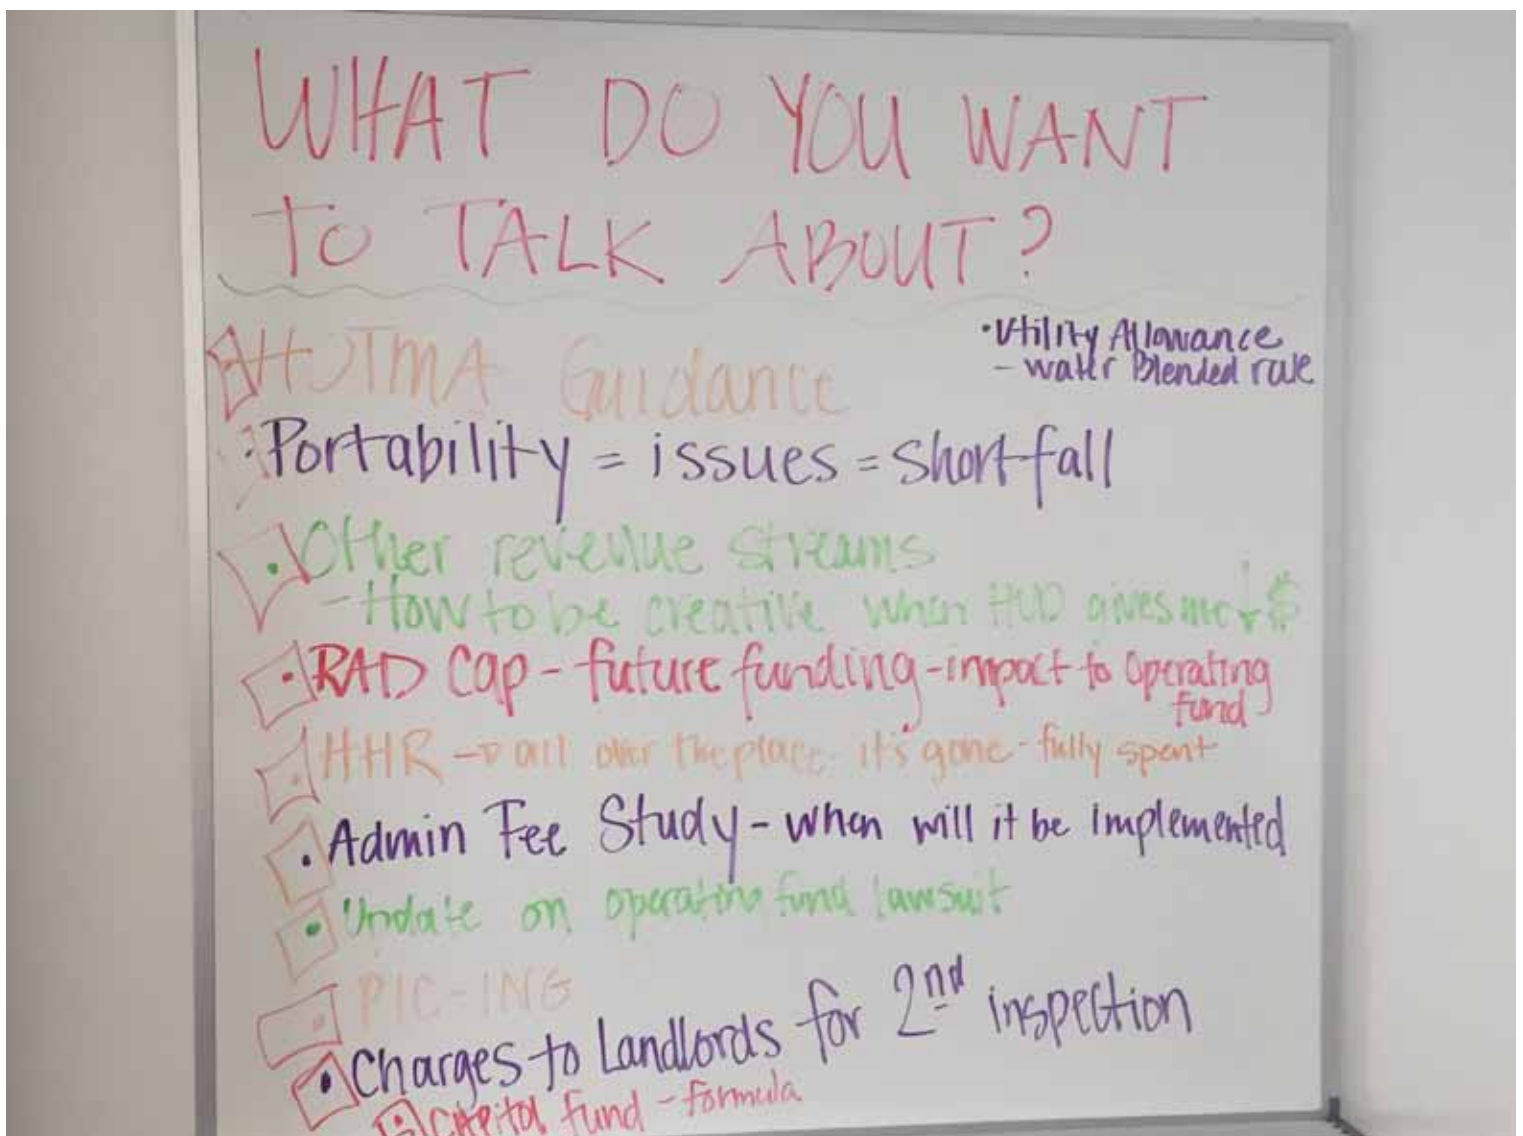 WHAT DO YOU WANT
TO TALK ABOUT?
HOTMA Guidance
• Utility Allowance
- water Blended rate
• Portability = issues = shortfall
• Other revenue streams
- How to be creative when HUD gives me ↓ $
• RAD Cap - future funding - impact to operating
fund
• HHR → all over the place - it's gone - fully spent
• Admin Fee Study - when will it be implemented
• Update on operating fund lawsuit
• PIC-ING
• Charges to Landlords for 2nd inspection
• Capital fund - formula